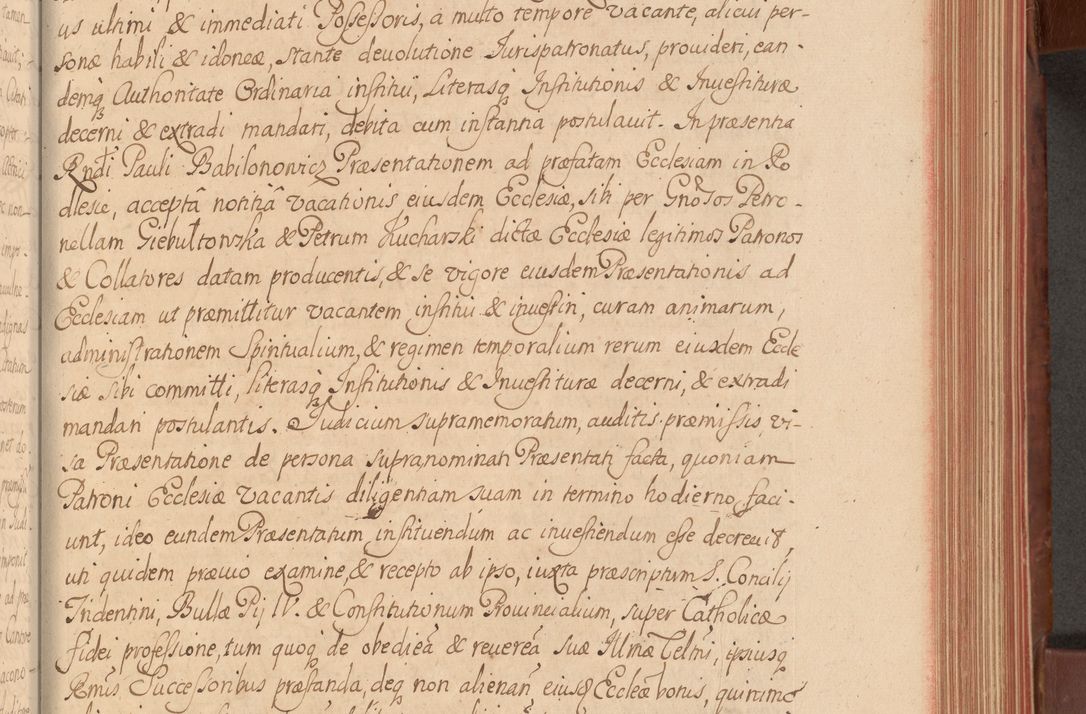 us ultimi & immediati Possessoris, a multo tempore vacante, alicui per-
sonæ habili & idoneæ, stante devolutione Jurispatronatus, provideri, ean-
demq Authoritate Ordinaria institui, Literasq Institutionis & Investituræ
decerni & extradi mandari, debita cum instantia postulavit. In præsentia
Rndi Pauli Babilonowicz Præsentationem ad præfatam Ecclesiam in Ro
dlesie, acceptâ notitiâ vacationis eiusdem Ecclesiæ, sibi per Gnosos Petro-
nellam Giebułtowska & Petrum Kucharski dictæ Ecclesiæ legitimos Patronos
& Collatores datam producentis, & se vigore eiusdem Præsentationis ad
Ecclesiam ut præmittitur vacantem institui & investiri, curam animarum,
administrationem Spiritualium, & regimen temporalium rerum eiusdem Eccle
siæ sibi committi, literasq Institutionis & Investituræ decerni, & extradi
mandari postulantis. Judicium supramemoratum, auditis præmissis, vi-
sa Præsentatione de persona supranominati Præsentati facta, quoniam
Patroni Ecclesiæ vacantis diligentiam suam in termino hodierno faci-
unt, ideo eundem Præsentatum instituendum ac investiendum esse decrevit,
uti quidem prævio examine, & recepto ab ipso, iuxta præscriptum S. Concilij
Tridentini, Bullæ Pij IV. & Constitutionum Provincialium, super Catholicæ
fidei professione, tum quoq de obedieã & revereã suæ Illmæ Celtni, ipsiusq
Rmis Successoribus præstanda, deq non alienañ eiusd Eccleæ bonis, quinimo